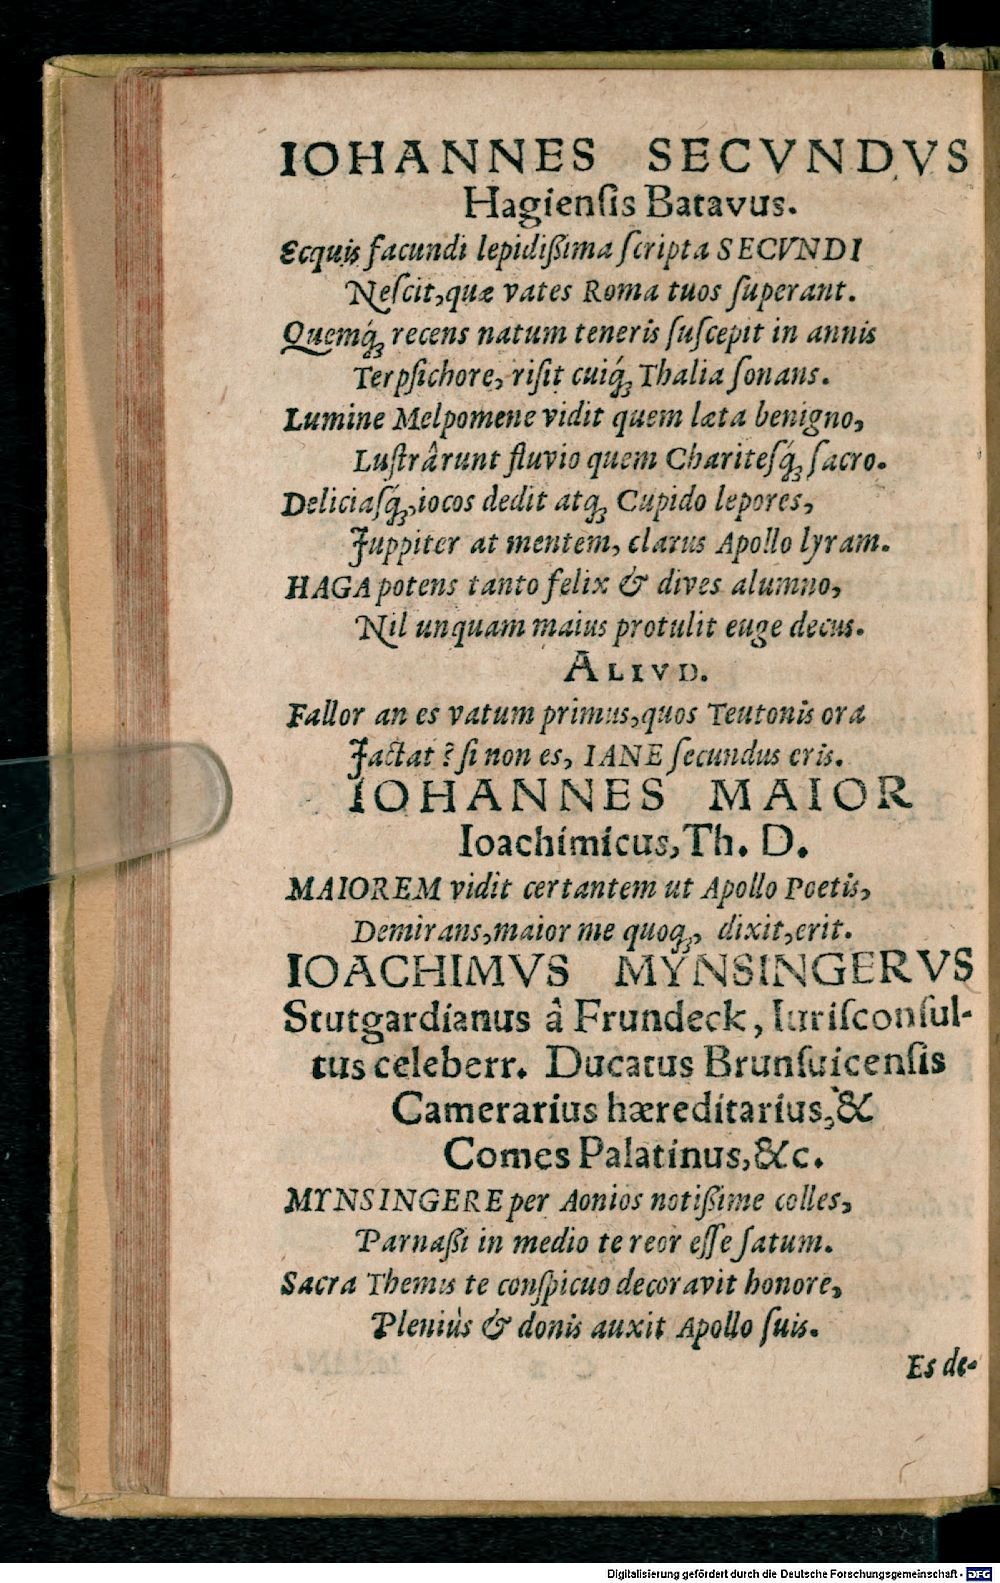 IOHANNES SECVNDVS
Hagienſis Batavus.
Ecquis facundi lepidißima ſcripta SECVNDI
Neſcit, quæ vates Roma tuos ſuperant.
Quemq́ꝫ recens natum teneris ſuſcepit in annis
Terpſichore, riſit cuiq́ꝫ Thalia ſonans.
Lumine Melpomene vidit quem læta benigno,
Luſtrârunt fluvio quem Chariteſq́ꝫ ſacro.
Deliciaſq́ꝫ, iocos dedit atqꝫ Cupido lepores,
Juppiter at mentem, clarus Apollo lyram.
HAGA potens tanto felix & dives alumno,
Nil unquam maius protulit euge decus.
ALIVD.
Fallor an es vatum primus, quos Teutonis ora
Jactat? ſi non es, IANE ſecundus eris.
IOHANNES MAIOR
Ioachimicus, Th. D.
MAIOREM vidit certantem ut Apollo Poetis,
Demirans, maior me quoqꝫ, dixit, erit.
IOACHIMVS MYNSINGERVS
Stutgardianus â Frundeck, Iuriſconſul-
tus celeberr. Ducatus Brunſuicenſis
Camerarius hæreditarius, &
Comes Palatinus, &c.
MYNSINGERE per Aonios notißime colles,
Parnaßi in medio te reor eſſe ſatum.
Sacra Themis te conſpicuo decoravit honore,
Pleniùs & donis auxit Apollo ſuis.
Es de-
Digitalisierung gefördert durch die Deutsche Forschungsgemeinschaft - DFG